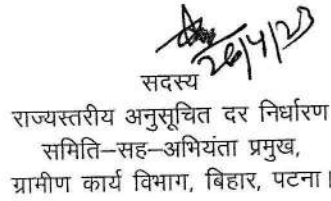 26/4/23
सदस्य
राज्यस्तरीय अनुसूचित दर निर्धारण
समिति–सह–अभियंता प्रमुख,
ग्रामीण कार्य विभाग, बिहार, पटना।